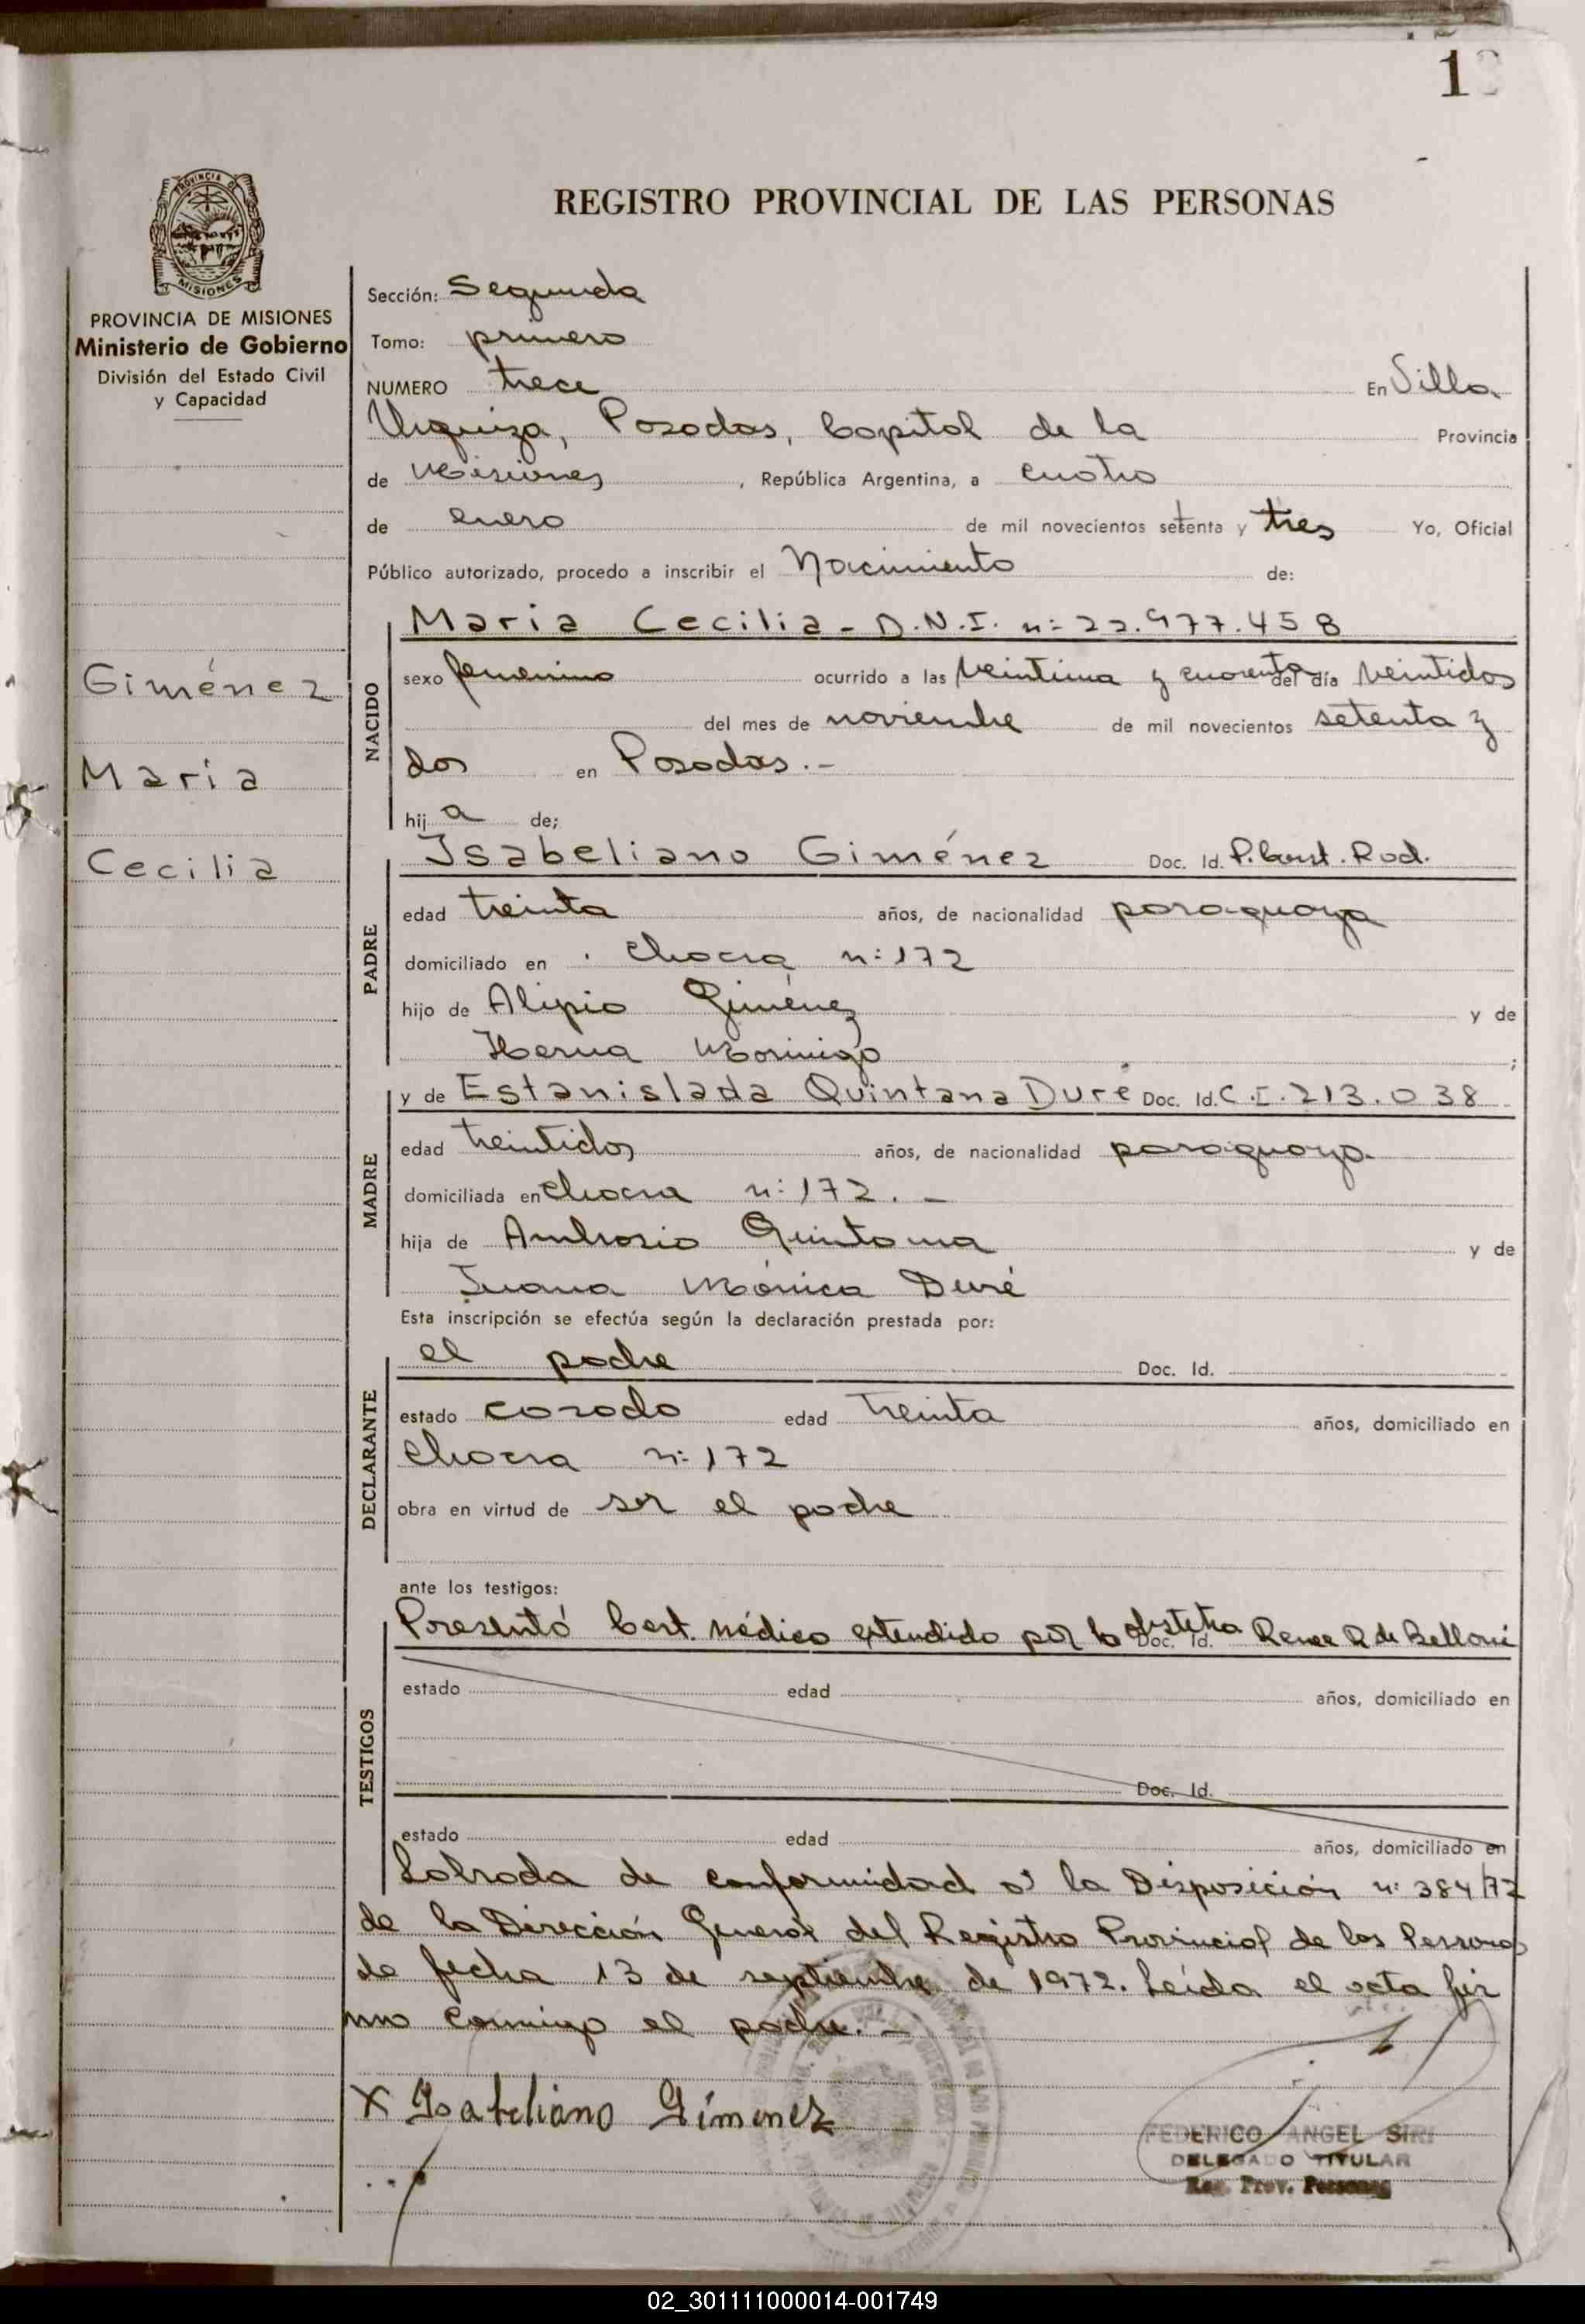 13
REGISTRO PROVINCIAL DE LAS PERSONAS
PROVINCIA DE MISIONES
PROVINCIA DE MISIONES
Ministerio de Gobierno
División del Estado Civil
y Capacidad
Giménez
María
Cecilia
Sección: Segunda
Tomo: primero
NUMERO trece En Villa
Urquiza, Posadas, Capital de la Provincia
de Misiones, República Argentina, a cuatro
de enero de mil novecientos setenta y tres Yo, Oficial
Público autorizado, procedo a inscribir el Nacimiento de:
NACIDO
María Cecilia - D.N.I. n: 22.977.458
sexo femenino ocurrido a las veintiuna y cuarenta del día veintidos
del mes de noviembre de mil novecientos setenta y
dos en Posadas.-
hija de;
PADRE
Isabeliano Giménez Doc. Id. P. Const. Rad.
edad treinta años, de nacionalidad paraguaya
domiciliado en Chacra n: 172
hijo de Alipio Giménez y de
Morinigo;
MADRE
y de Estanislada Quintana Duré Doc. Id. C.I. 213.038
edad treintidos años, de nacionalidad paraguaya
domiciliada en chacra n: 172. -
hija de Ambrosio Quintana y de
Juana Mónica Duré
Esta inscripción se efectúa según la declaración prestada por:
DECLARANTE
el padre Doc. Id.
estado casado edad treinta años, domiciliado en
Chacra n: 172
obra en virtud de ser el padre
ante los testigos:
TESTIGOS
Presentó Cert. médico extendido por la obstetra Doc. Id. Renee R de Belloni
estado edad años, domiciliado en
Doc. Id.
estado edad años, domiciliado en
Labrada de conformidad a la Disposición n: 384/72
de la Dirección General del Registro Provincial de las Personas
de fecha 13 de septiembre de 1972. Leída el acta fir
ma conmigo el padre. -
X Isabeliano Gímenez
FEDERICO ANGEL SIRI
DELEGADO TITULAR
Reg. Prov. Personas
02_301111000014-001749